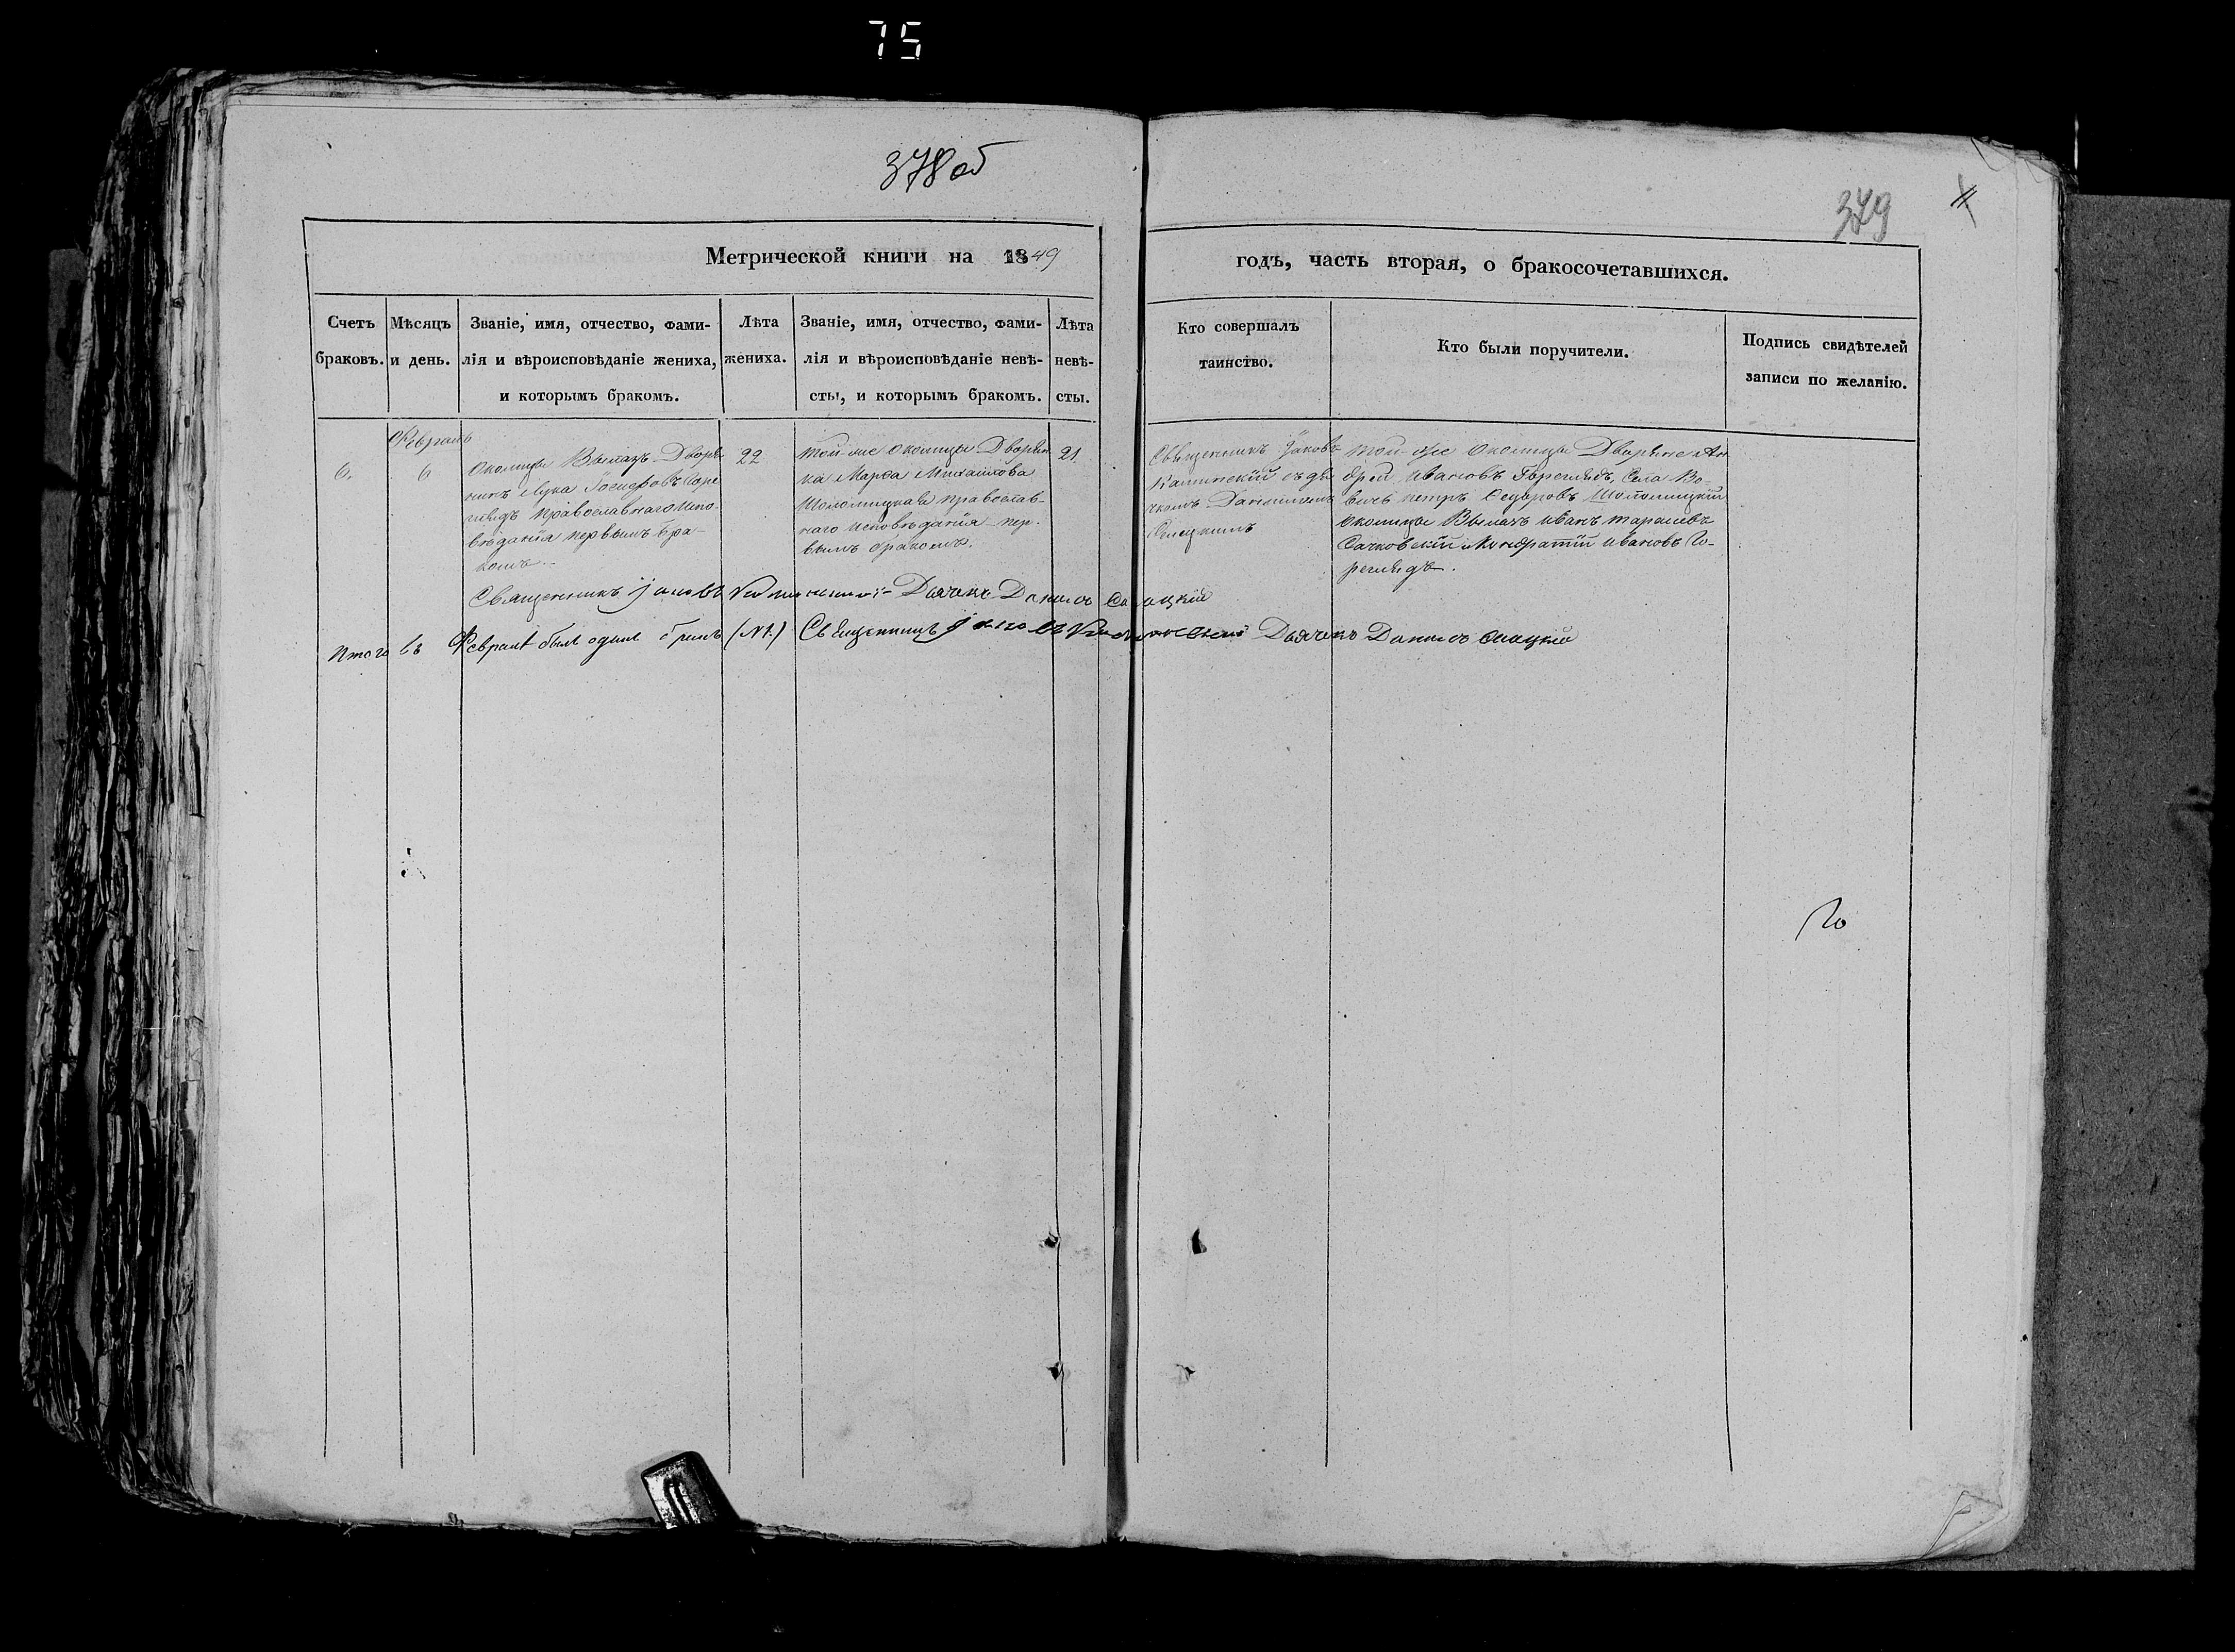 75
378 об
379
Метрической книги на 1849
годъ, часть вторая, о бракосочетавшихся.
Счетъ браковъ.
Мѣсяцъ и день.
Званіе, имя, отчество, фами-
лія и вѣроисповѣданіе жениха,
и которымъ бракомъ.
Лѣта
жениха.
Званіе, имя, отчество, фами-
лія и вѣроисповѣданіе невѣ-
сты, и которымъ бракомъ.
Лѣта
невѣ-
сты.
Кто совершалъ
таинство.
Кто были поручители.
Подпись свидѣтелей
записи по желанію.
6.
Февраль
6
Околицы Дворя-
нинъ Лука Іосифовъ Горе-
глядъ православнаго испо-
вѣданія первымъ бра-
комъ.
22
той-же околицы Дворян-
ка Марѳа Михайлова
Шоломицкая православ-
наго исповѣданія пер-
вымъ бракомъ.
21.
Священникъ Іаковъ
съ дья-
чкомъ Даниломъ
той-же околицы Дворяне Ан-
дрей Ивановъ Гореглядъ, Села
Петръ Федоровъ Шоломицкій
околицы Иванъ Тарасовъ
Сачковскій и Кондратій Ивановъ Го-
реглядъ.
Священникъ Іаковъ Дьячекъ Данило
Итого въ Февралѣ былъ одинъ бракъ (№1.) Священникъ Іаковъ Дьячекъ Данило